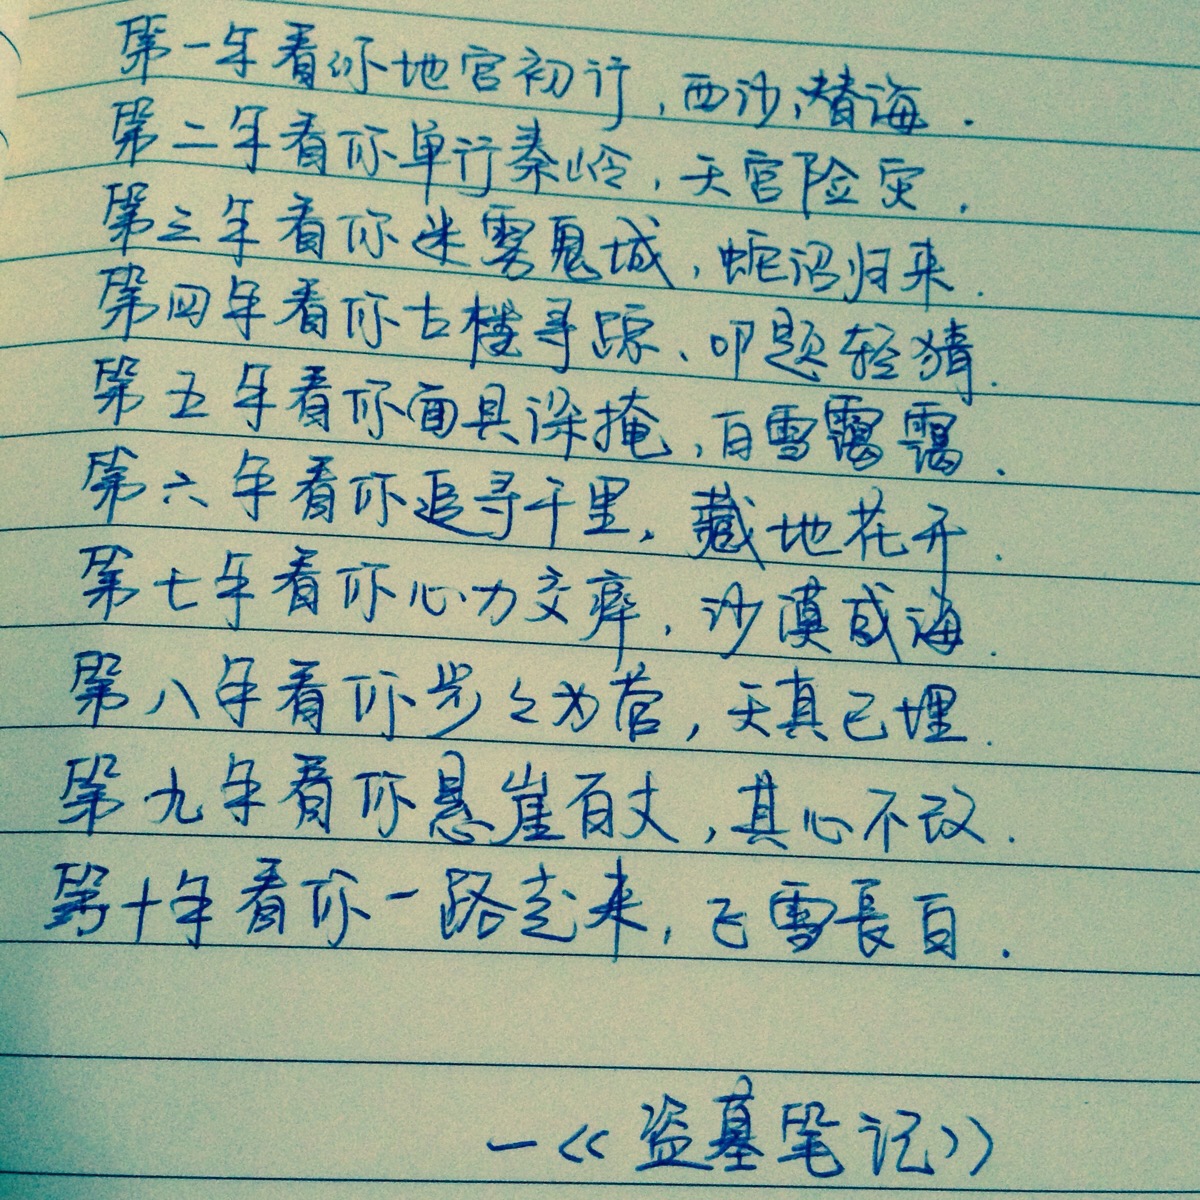 第一年看你地宫初行,西沙,潜海.
第二年看你单行秦岭,天宫险灾.
第三年看你迷雾鬼城,蛇沼归来.
第四年看你古楼寻踪、叩题轻猜.
第五年看你面具深掩,白雪霭霭.
第六年看你追寻千里,藏地花开.
第七年看你心力交瘁,沙漠成海.
第八年看你步々为营,天真已埋.
第九年看你悬崖百丈,其心不改.
第十年看你一路走来,飞雪長白.
—《盗墓笔记》